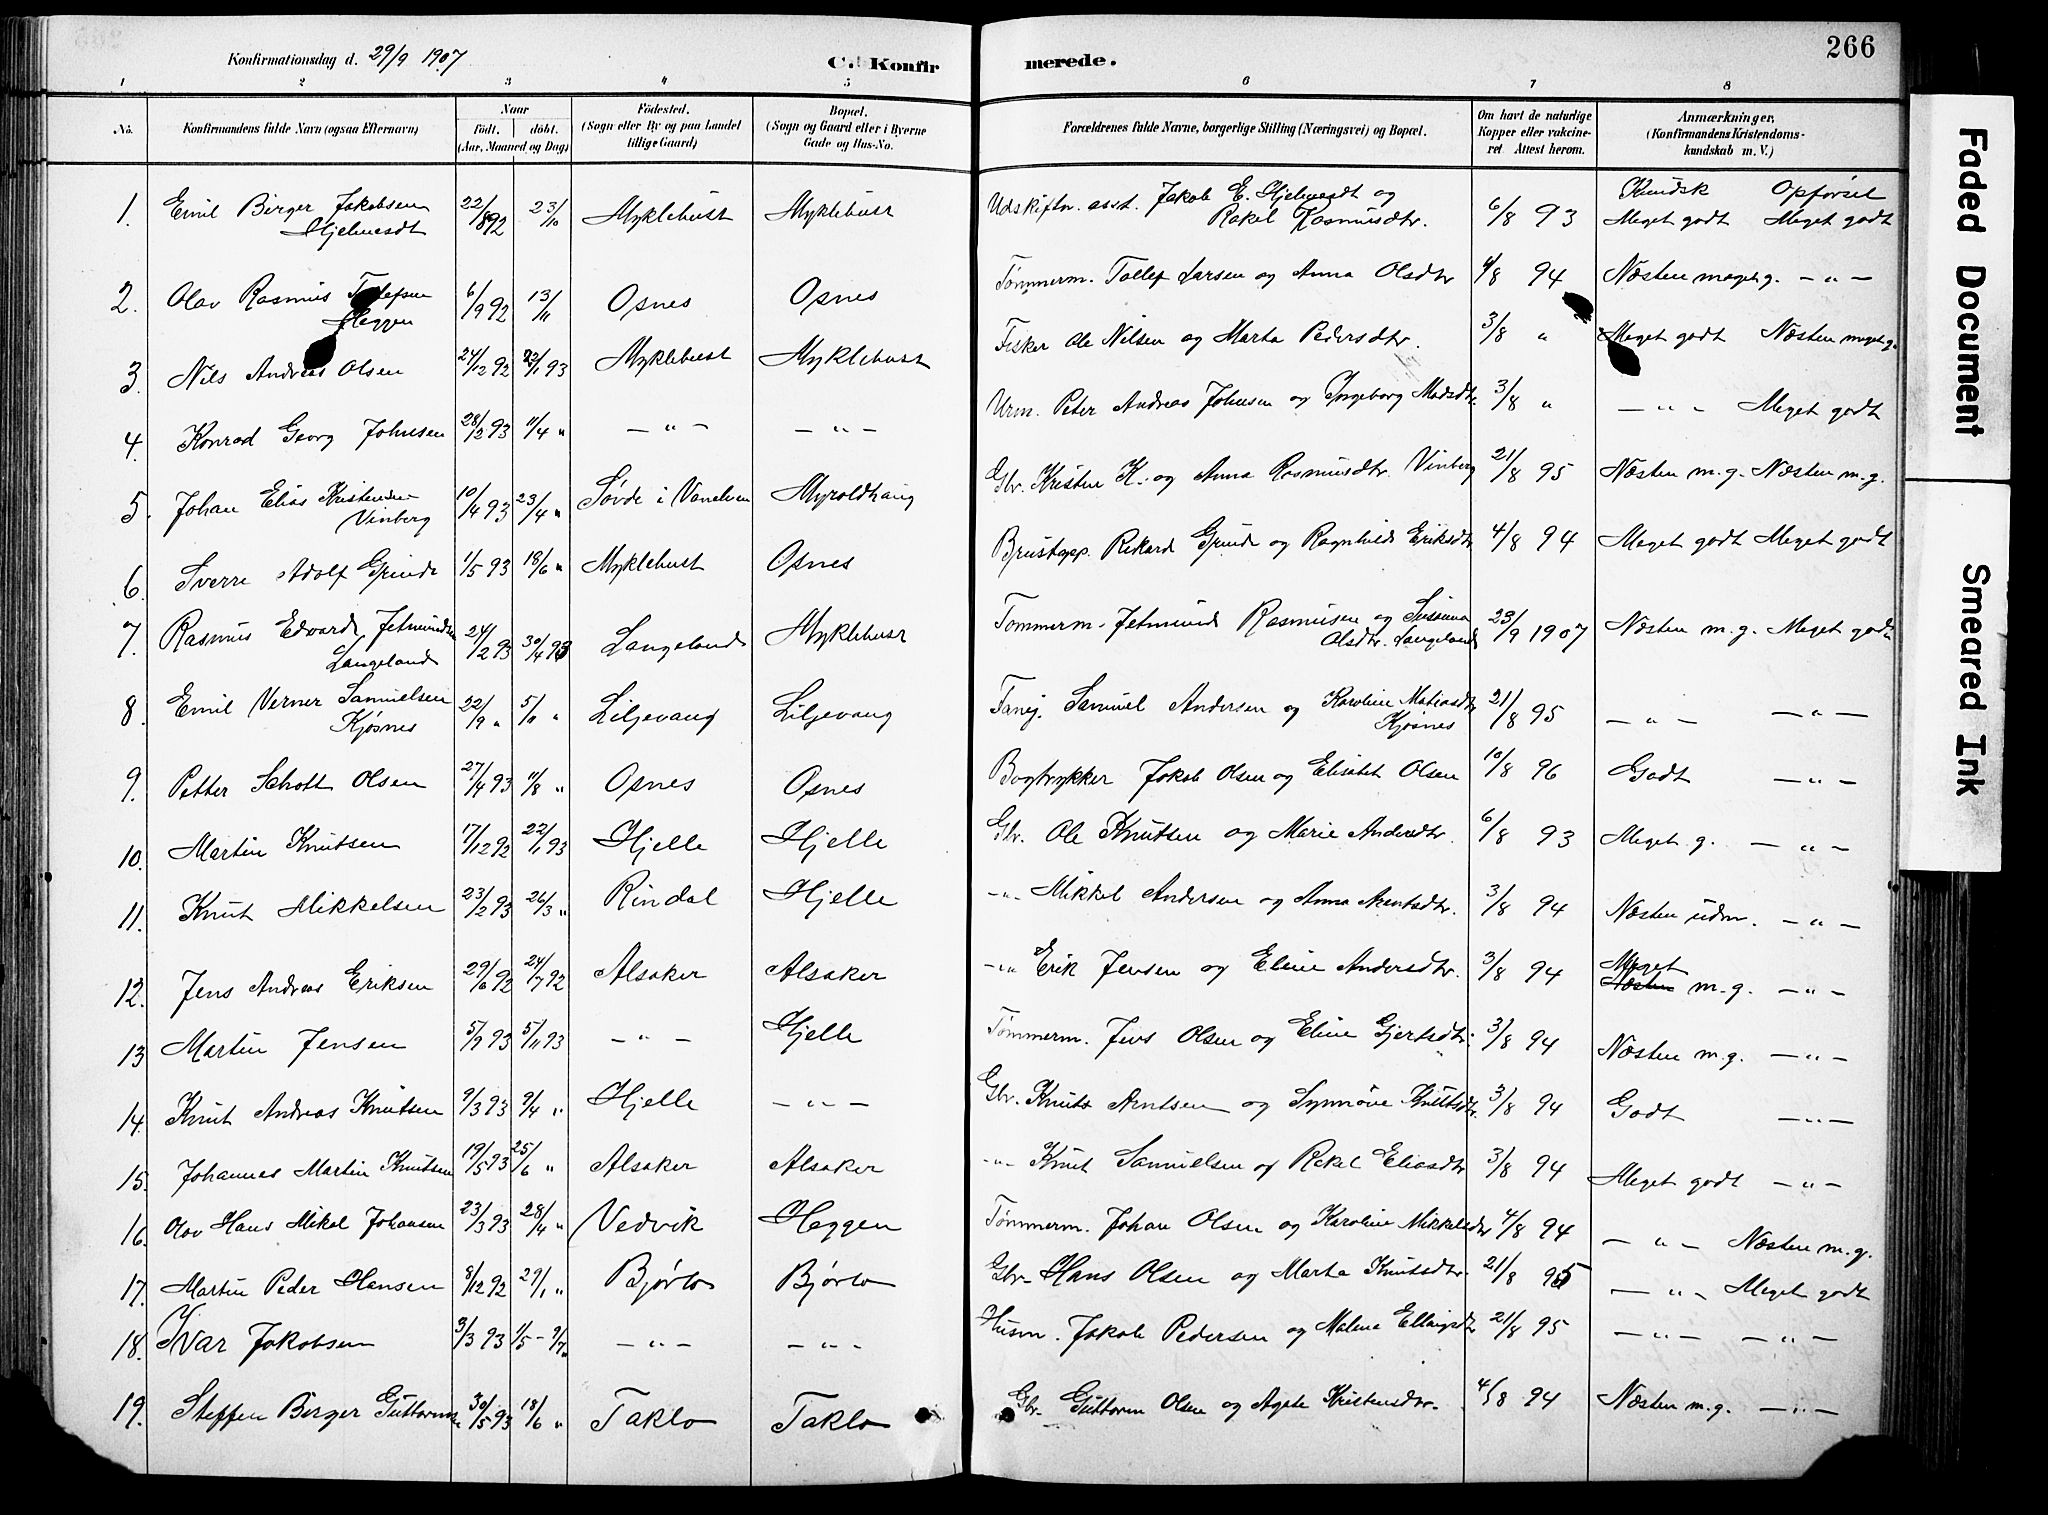 Konfirmationsdag d. 29/9 1907
C. Konfirmerede.
266
1 2 3 4 5 6 7 8
No.
Konfirmandens fulde Navn (ogsaa Efternavn)
Naar
født. døbt.
(Aar, Maaned og Dag)
Fødested.
(Sogn eller By og paa Landet
tillige Gaard)
Bopæl.
(Sogn og Gaard eller i Byerne
Gade og Hus-No.
Forældrenes fulde Navne, borgerlige Stilling (Næringsvei) og Bopæl.
Om havt de naturlige
Kopper eller vakcine-
ret Attest herom.
Anmærkninger,
(Konfirmandens Kristendoms-
kundskab m. V.)
Kundsk Opførsel
1. Emil Birger Jakobsen Hjelmesdt 22/8 92 23/10 Myklebust Myklebust Udskiftn. asst. Jakob E. Hjelmesdt og Rakel Rasmusdtr. 6/8 93 Meget godt Meget godt
2. Olav Rasmus Heggen 6/9 92 13/11 Osnes Osnes Tømmerm. Tollef Larsen og Anna Olsdtr 4/8 94 Næsten meget g. — " —
3. Nils Andreas Olsen 24/12 92 22/1 93 Myklebust Myklebust Fisker Ole Nilsen og Marta Pedersdtr. 3/8 " Meget godt Næsten meget g.
4. Konrad Georg Johnsen 28/2 93 11/4 " — " — — " — Urm. Peter Andreas Johnsen og Ingeborg Madsdtr. 3/8 " — " — Meget godt
5. Johan Elias Kristensen Vinberg 10/4 93 23/4 " Søvde i Vanelven Myroldhaug Gbr. Kristen K. og Anna Rasmusdtr. Vinberg 21/8 95 Næsten m.g. Næsten m.g.
6. Sverre Adolf Grinde 1/5 93 18/6 " Myklebust Osnes Rikard Grinde og Ragnhild Eriksdtr 4/8 94 Meget godt Meget godt
7. Rasmus Edvard Jetmundsen Langeland 24/2 93 30/4 93 Langeland Myklebust Tømmerm. Jetmund Rasmusen og Susanna Olsdtr. Langeland 23/9 1907 Næsten m.g. Meget godt
8. Emil Verner Samuelsen Kjøsnes 22/9 " 5/11 " Liljevang Liljevang Samuel Andersen og Karoline Matiasdtr Kjøsnes 21/8 95 — " — — " —
9. Petter Schott Olsen 27/4 93 11/8 " Osnes Osnes Bogtrykker Jakob Olsen og Elisabet Olsen 10/8 96 Godt — " —
10. Martin Knutsen 17/12 92 22/1 93 Hjelle Hjelle Gbr. Ole Knutsen og Marie Andersdtr. 6/8 93 Meget g. — " —
11. Knut Mikkelsen 23/2 93 26/3 " Rindal Hjelle -"- Mikkel Andersen og Anna Arntsdtr. 3/8 94 Næsten udm. — " —
12. Jens Andreas Eriksen 29/6 92 24/7 92 Alsaker Alsaker -"- Erik Jensen og Eline Andersdtr. 3/8 94 Meget Næsten m.g. — " —
13 Martin Jensen 5/9 93 5/11 93 — " — Hjelle Tømmerm. Jens Olsen og Eline Gjertsdtr. 3/8 94 Næsten m.g. — " —
14. Knut Andreas Knutsen 9/3 93 9/4 " Hjelle — " — Gbr. Knut Arntsen og Synnøve Knutsdtr. 3/8 94 Godt — " —
15. Johannes Martin Knutsen 19/5 93 25/6 " Alsaker Alsaker -"- Knut Samuelsen og Rakel Eliasdtr 3/8 94 Meget godt — " —
16. Olav Hans Mikal Johansen 23/3 93 28/4 " Vedvik Heggen Tømmerm. Johan Olsen og Karoline Mikkelsdtr 4/8 94 — " — Næsten m.g.
17. Martin Peder Hansen 8/12 92 29/1 " Bjørlo Bjørlo Gbr. Hans Olsen og Marta Knutsdtr. 21/8 95 — " — Meget godt
18. Ivar Jakobsen 3/3 93 1/5 - 9/7 " — " — — " — Husm. Jakob Pedersen og Malena Ellingsdtr 21/8 95 — " — — " —
19. Steffen Birger Guttormsen 30/5 93 18/6 " Taklo Taklo Gbr. Guttorm Olsen og Agate Kristensdtr. 4/8 94 Næsten m.g. — " —
Faded Document
Smeared Ink